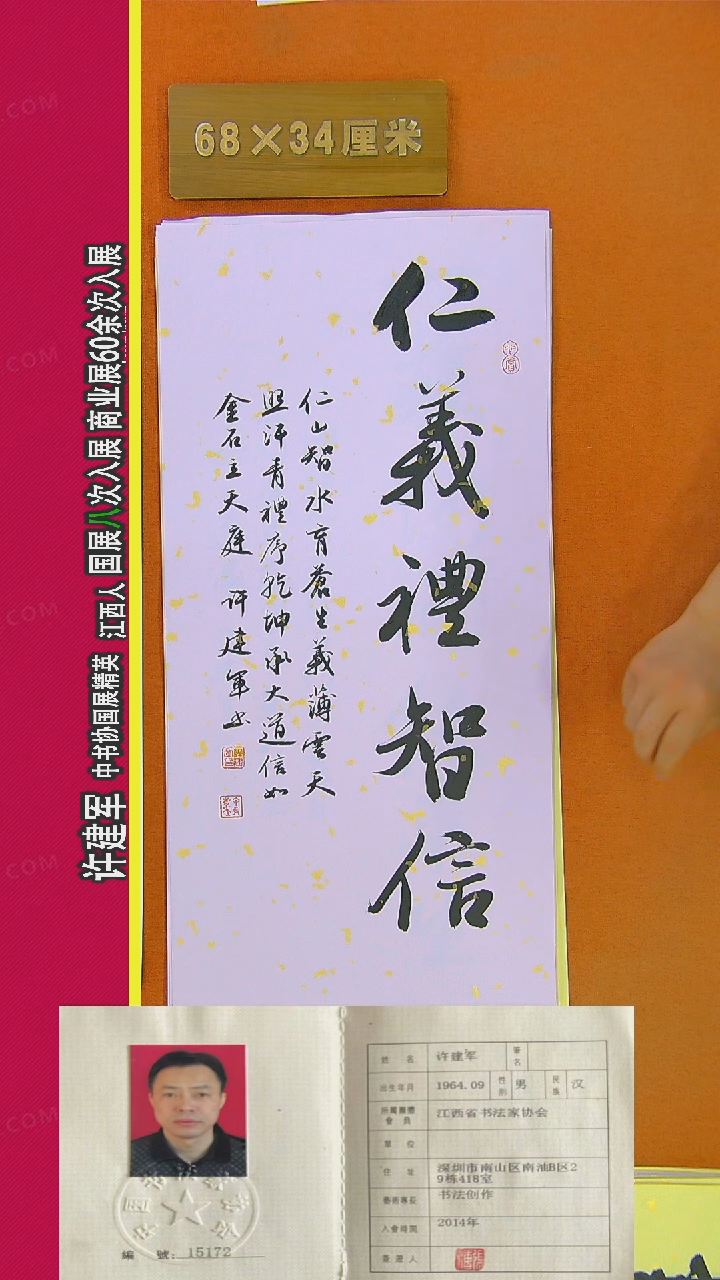 68×34厘米
仁義禮智信
仁山智水育蒼生義薄雲天
照汗青禮序乾坤承大道信如
金石立天庭 许建军书
许建军 中书协国展精英 江西人 国展八次入展 商业展60余次入展
.COM
.COM
.COM
.COM
.COM
姓 名 许建军 筆名
出生年月 1964.09 性别 男 民族 汉
所屬團體會員 江西省书法家协会
單 位
住 址 深圳市南山区南油B区2
9栋418室
藝術專長 书法创作
入會時間 2014年
簽證人
编 號: 15172